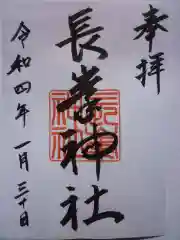 奉拝
長峯神社
令和四年一月三十日